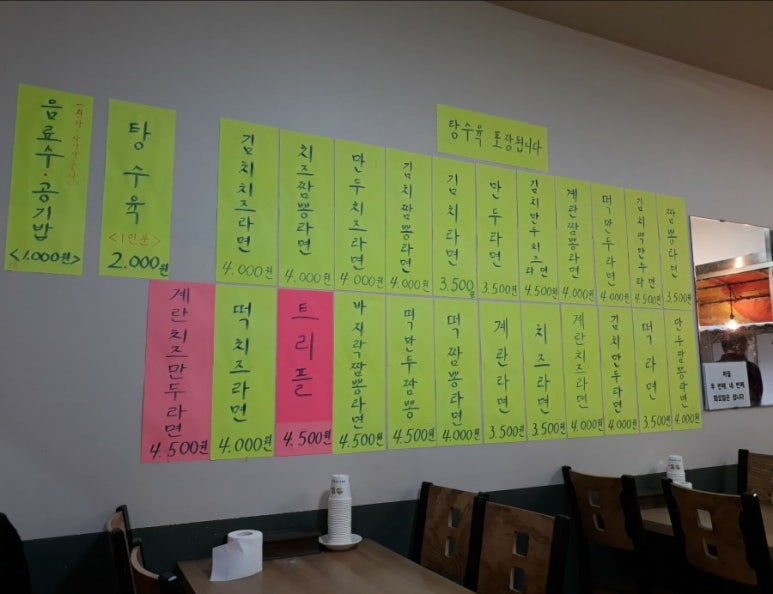 음료수·공기밥
<1.000원>
탕수육
<1인분>
2.000원
탕수육 포장됩니다
김치치즈라면
4.000원
치즈짬뽕라면
4.000원
만두치즈라면
4.000원
김치짬뽕라면
4.000원
김치라면
3.500원
만두라면
3.500원
김치만두치즈라면
4.500원
계란짬뽕라면
4.000원
떡만두라면
4.000원
김치떡만두라면
4.500원
짬뽕라면
3.500원
계란치즈만두라면
4.500원
떡치즈라면
4.000원
트리플
4.500원
바지락짬뽕라면
4.500원
떡만두짬뽕
4.500원
떡짬뽕라면
4.000원
계란라면
3.500원
치즈라면
3.500원
계란치즈라면
4.000원
김치만두라면
4.000원
떡라면
3.500원
만두짬뽕라면
4.000원
매월
두 번째 네 번째
화요일은 쉽니다